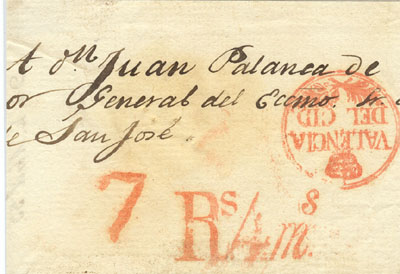 A dn Juan Palanca de
or General del Ecmo. Sr.
de San José.
VALENCIA
DEL CID
7 Rs/4 ms